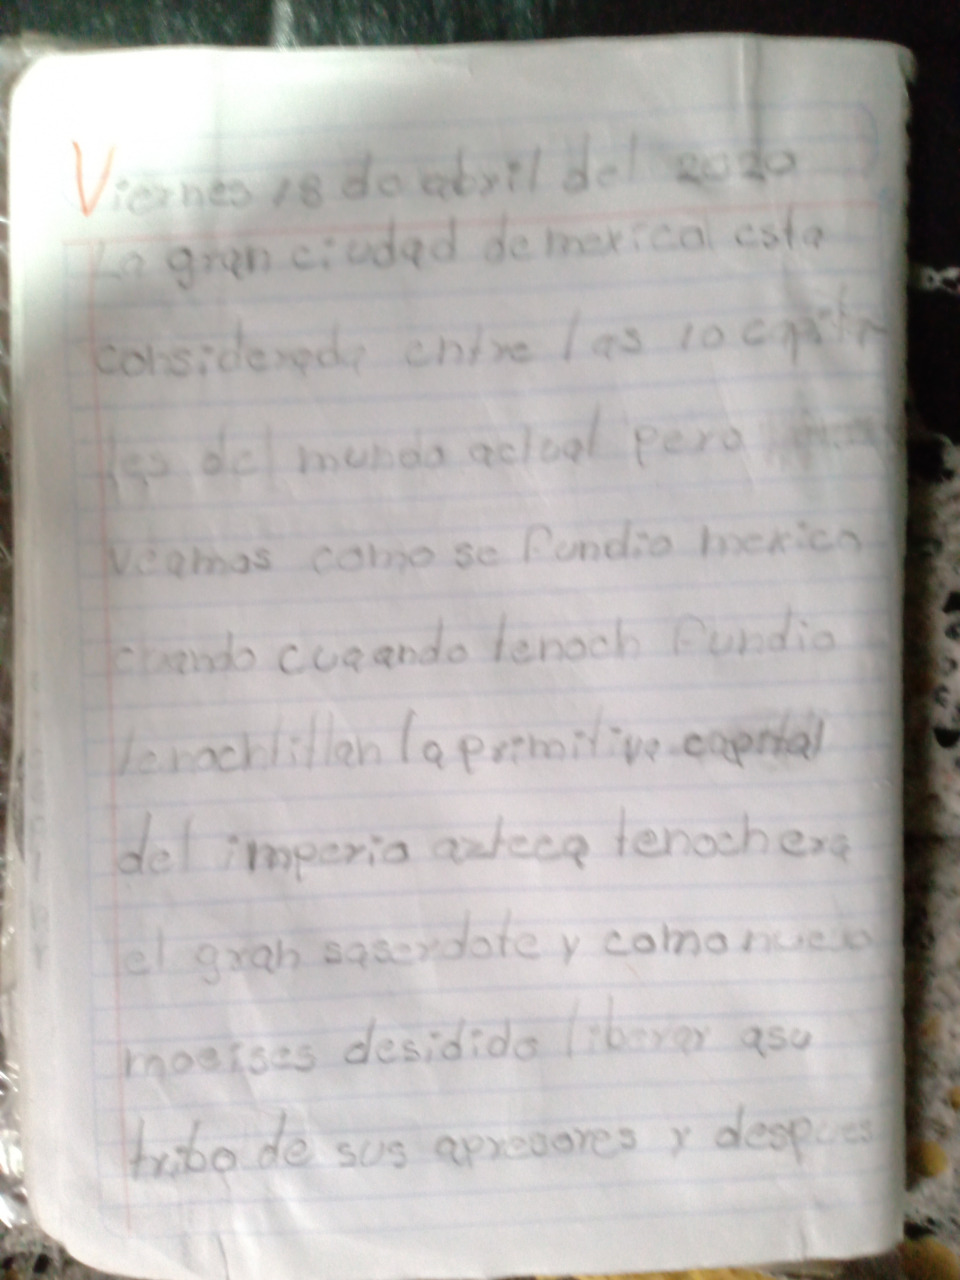 Viernes 18 de abril del 2020
La gran ciudad de mexical esta
considerada entre las 10 capita
les del mundo actual pero
veamos como se fundio mexico
cuando cuaando tenoch fundio
tenochtitlan la primitiva capital
del imperio azteca tenoch era
el gran saserdote y como nuevo
moeises desidido liberar asu
tribo de sus apresores y despues